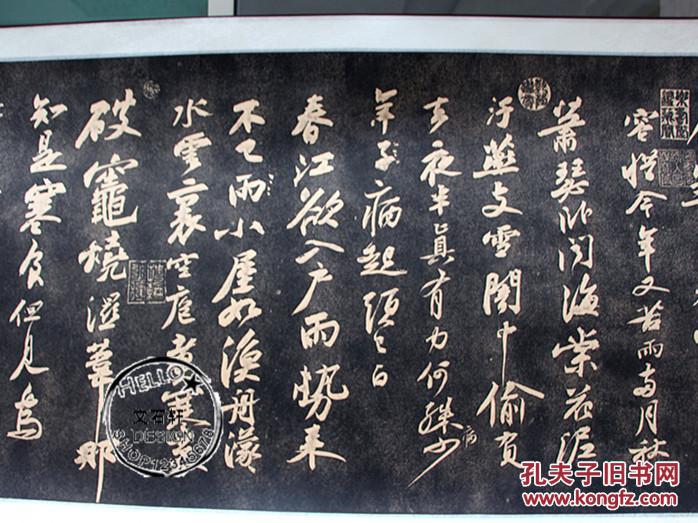 容惜今年又苦雨兩月秋
蕭瑟卧聞海棠花泥
汙燕支雪闇中偷負
去夜半真有力何殊少
病
年子病起須已白
春江欲入戶雨勢來
不已雨小屋如漁舟濛
水雲裏空庖煮寒菜
破竈燒濕葦那
知是寒食但見烏
HELLO
文石轩
DESIGN
SHOP12345678
孔夫子旧书网
www.kongfz.com